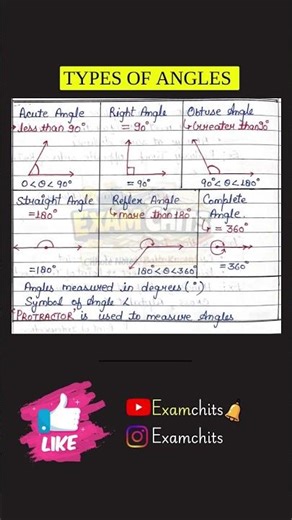 TYPES OF ANGLES
Acute Angle
↳less than 90°
0<θ<90°
Right Angle
= 90°
= 90°
Obtuse Angle
↳Greater than 90°
90°<θ<180°
Straight Angle
=180°
=180°
Reflex Angle
↳more than 180°
180°<θ<360°
Complete
Angle.
↳ = 360°
= 360°
EXAMChits
Angles measured in degrees (°)
Symbol of Angle <
'PROTRACTOR' is used to measure Angles
LIKE
Examchits
Examchits